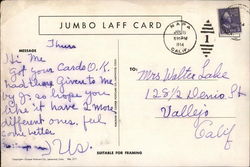 JUMBO LAFF CARD
NAPA
CALIF
1
MESSAGE
TO:
Thurs
Hi Me
got your Cards O.K.
had them Given to me
so hope you
like it have 2 more
different ones. feel
some better
Us.
Mrs Walter Lake
1282 Denio St
Vallejo
Calif
SUITABLE FOR FRAMING